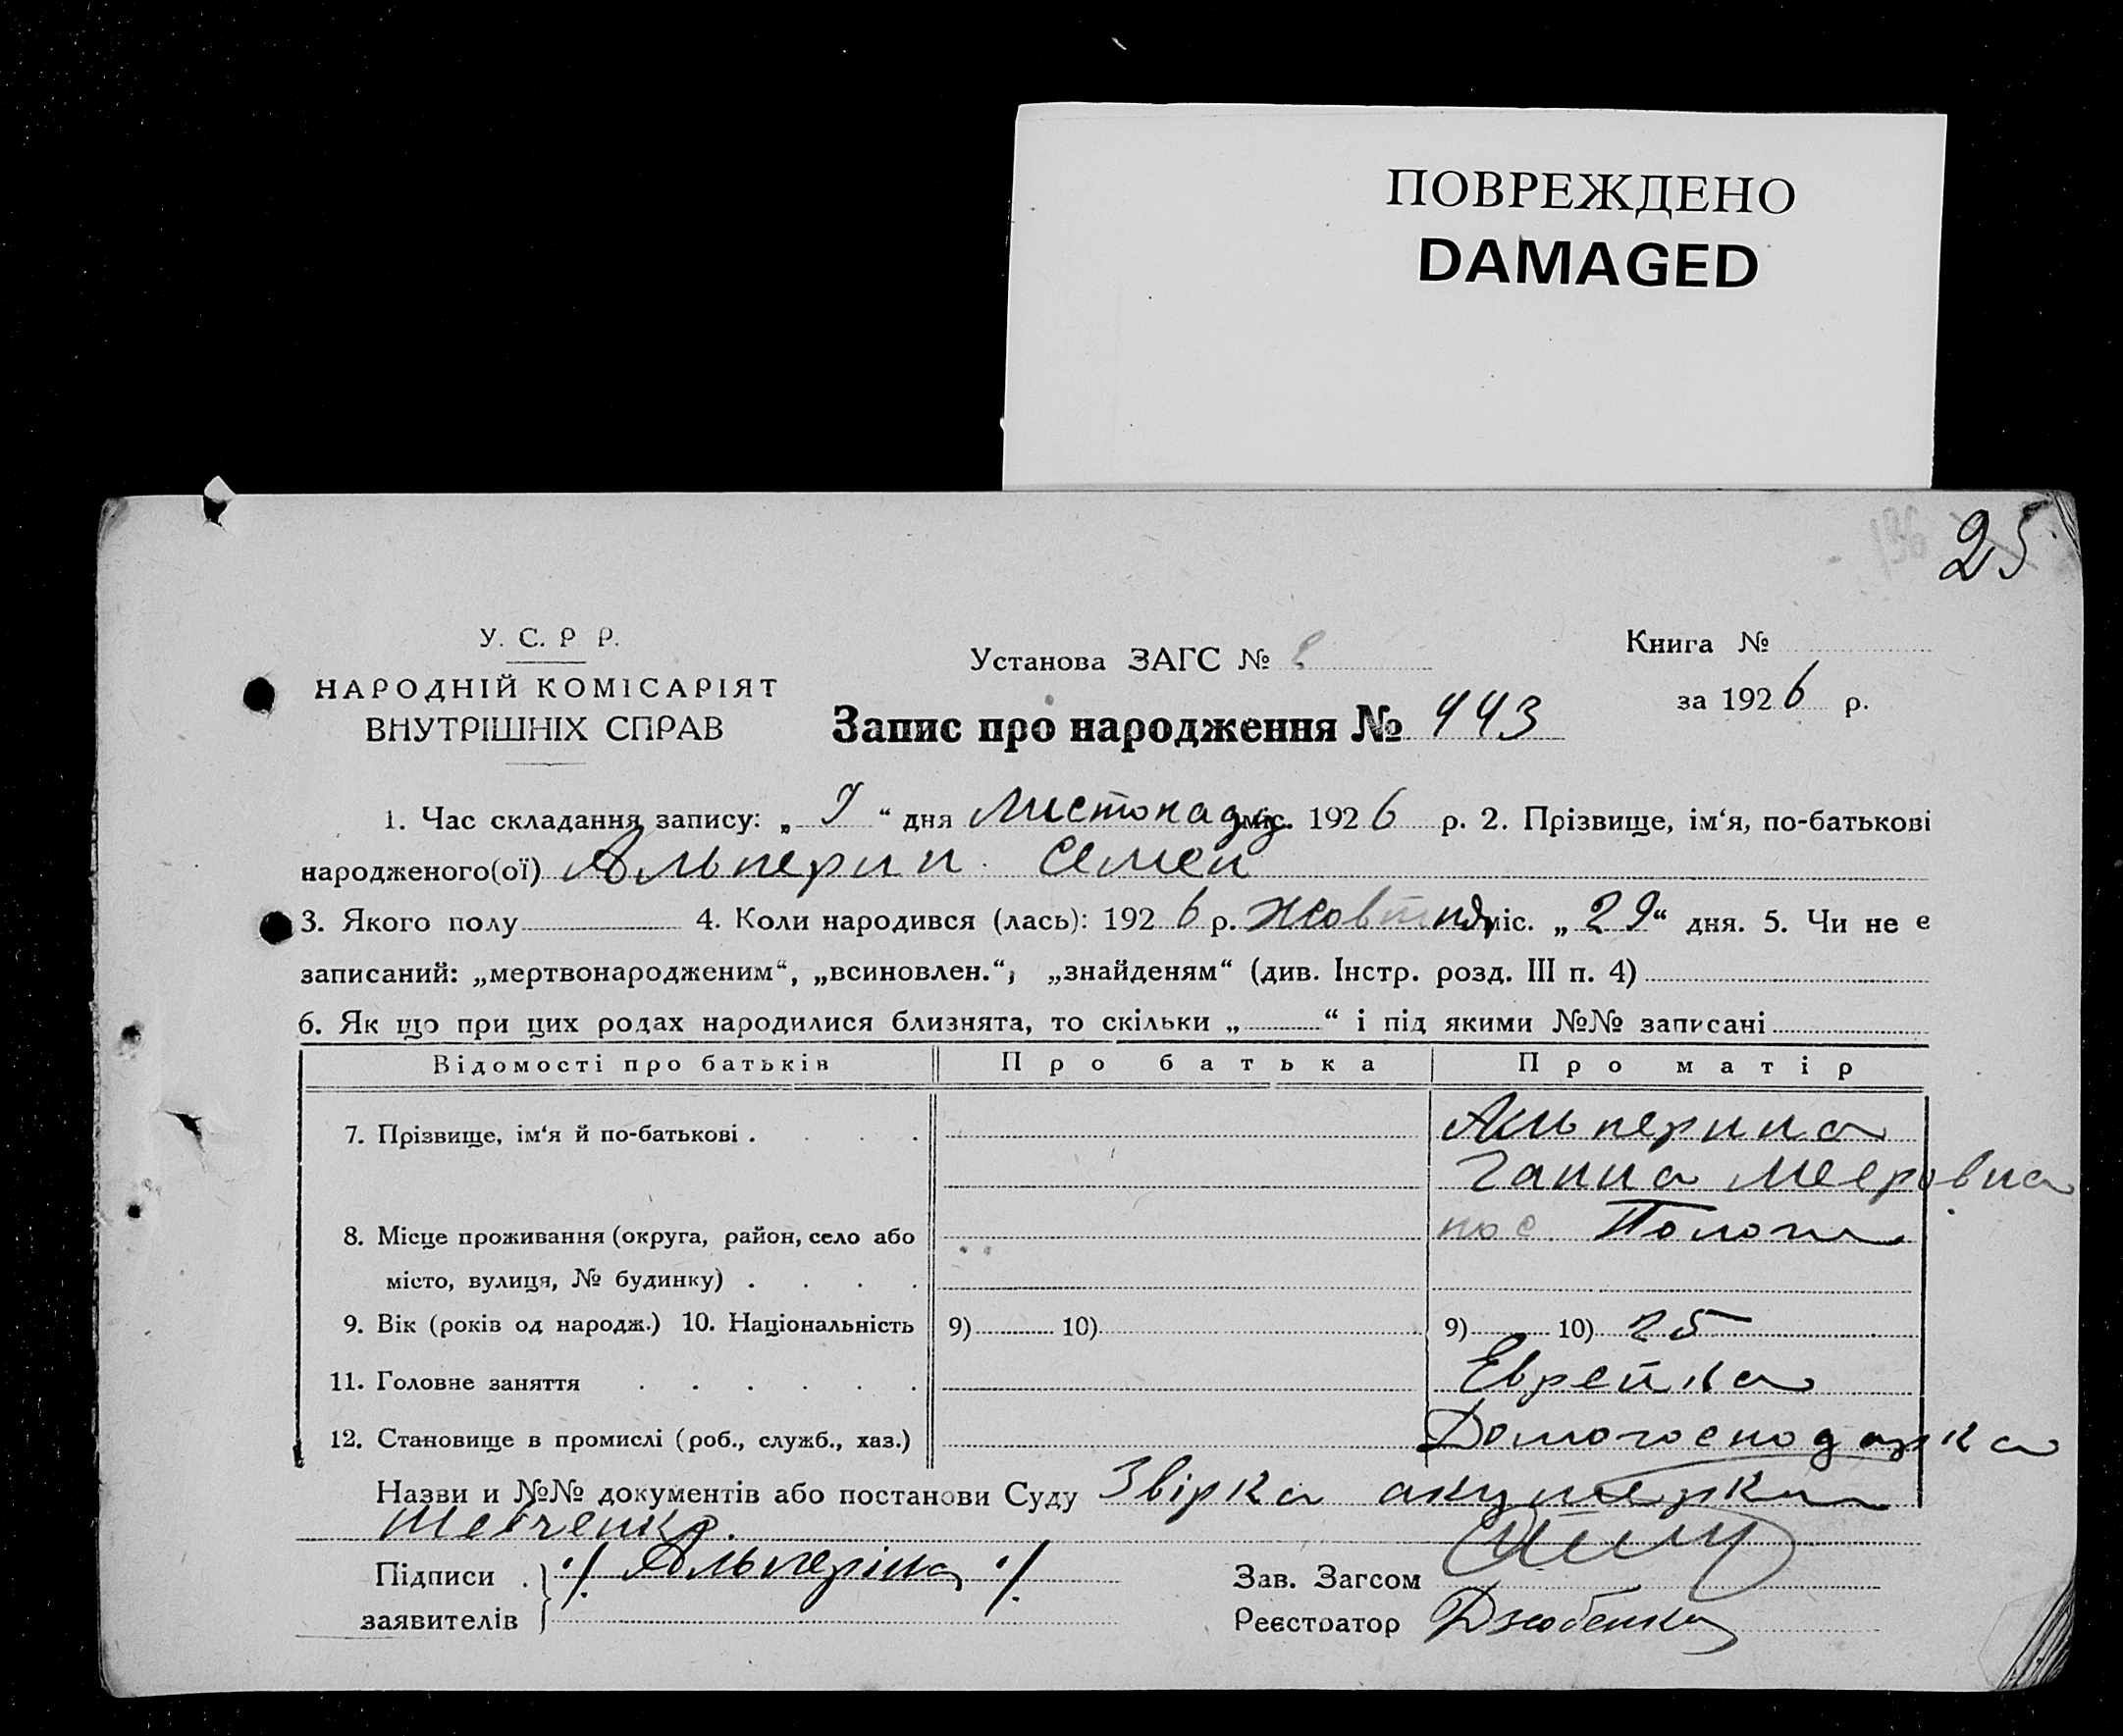 ПОВРЕЖДЕНО
DAMAGED
25
У. С. Р Р.
НАРОДНІЙ КОМІСАРІЯТ
ВНУТРІШНІХ СПРАВ
Установа ЗАГС №
Запис про народження № 443
Книга №
за 1926 р.
1. Час складання запису: „ “ дня Листопада міс. 1926 р. 2. Прізвище, ім‘я, по-батькові
народженого(ої) Альперин Семен
3. Якого полу 4. Коли народився (лась): 1926 р. жовтня міс. „29“ дня. 5. Чи не є
записаний: „мертвонародженим“, „всиновлен.“, „знайденям“ (див. Інстр. розд. III п. 4)
6. Як що при цих родах народилися близнята, то скільки „ “ і під якими №№ записані
Відомості про батьків Про батька Про матір
7. Прізвище, ім‘я й по-батькові . . . . Альперина
Ганна Мееровна
8. Місце проживання (округа, район, село або пос. Пологи
місто, вулиця, № будинку) . . . .
9. Вік (років од народж.) 10. Національність 9) 10) 9) 10) 25
11. Головне заняття . . . . . . Еврейка
12. Становище в промислі (роб., служб., хаз.) Домогосподарка
Назви и №№ документів або постанови Суду Звірка акушерки
Шевченко.
Підписи ./. Альперіна ./.
заявителів
Зав. Загсом
Реєстратор Дзюбенко